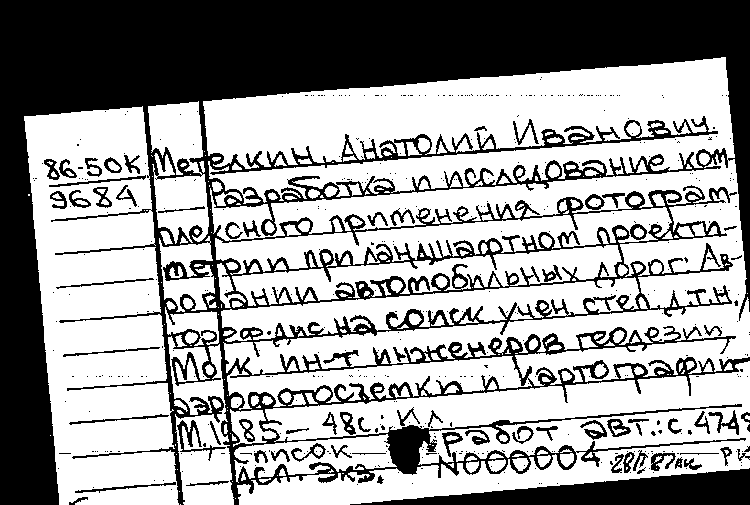 86-50К Метелкин, Анатолий Иванович.
9684 Разработка и исследование ком-
плексного применения фотограм-
метрии при ландшафтном проекти-
ровании автомобильных дорог: Ав-
тореф. дис. на соиск. учен. степ. д.т.н./
Моск. ин-т инженеров геодезии,
аэрофотосъемки и картографии.-
М., 1985.- 48с.: ил.
Список работ авт.: с.47-48
ДСП. Экз. N000004